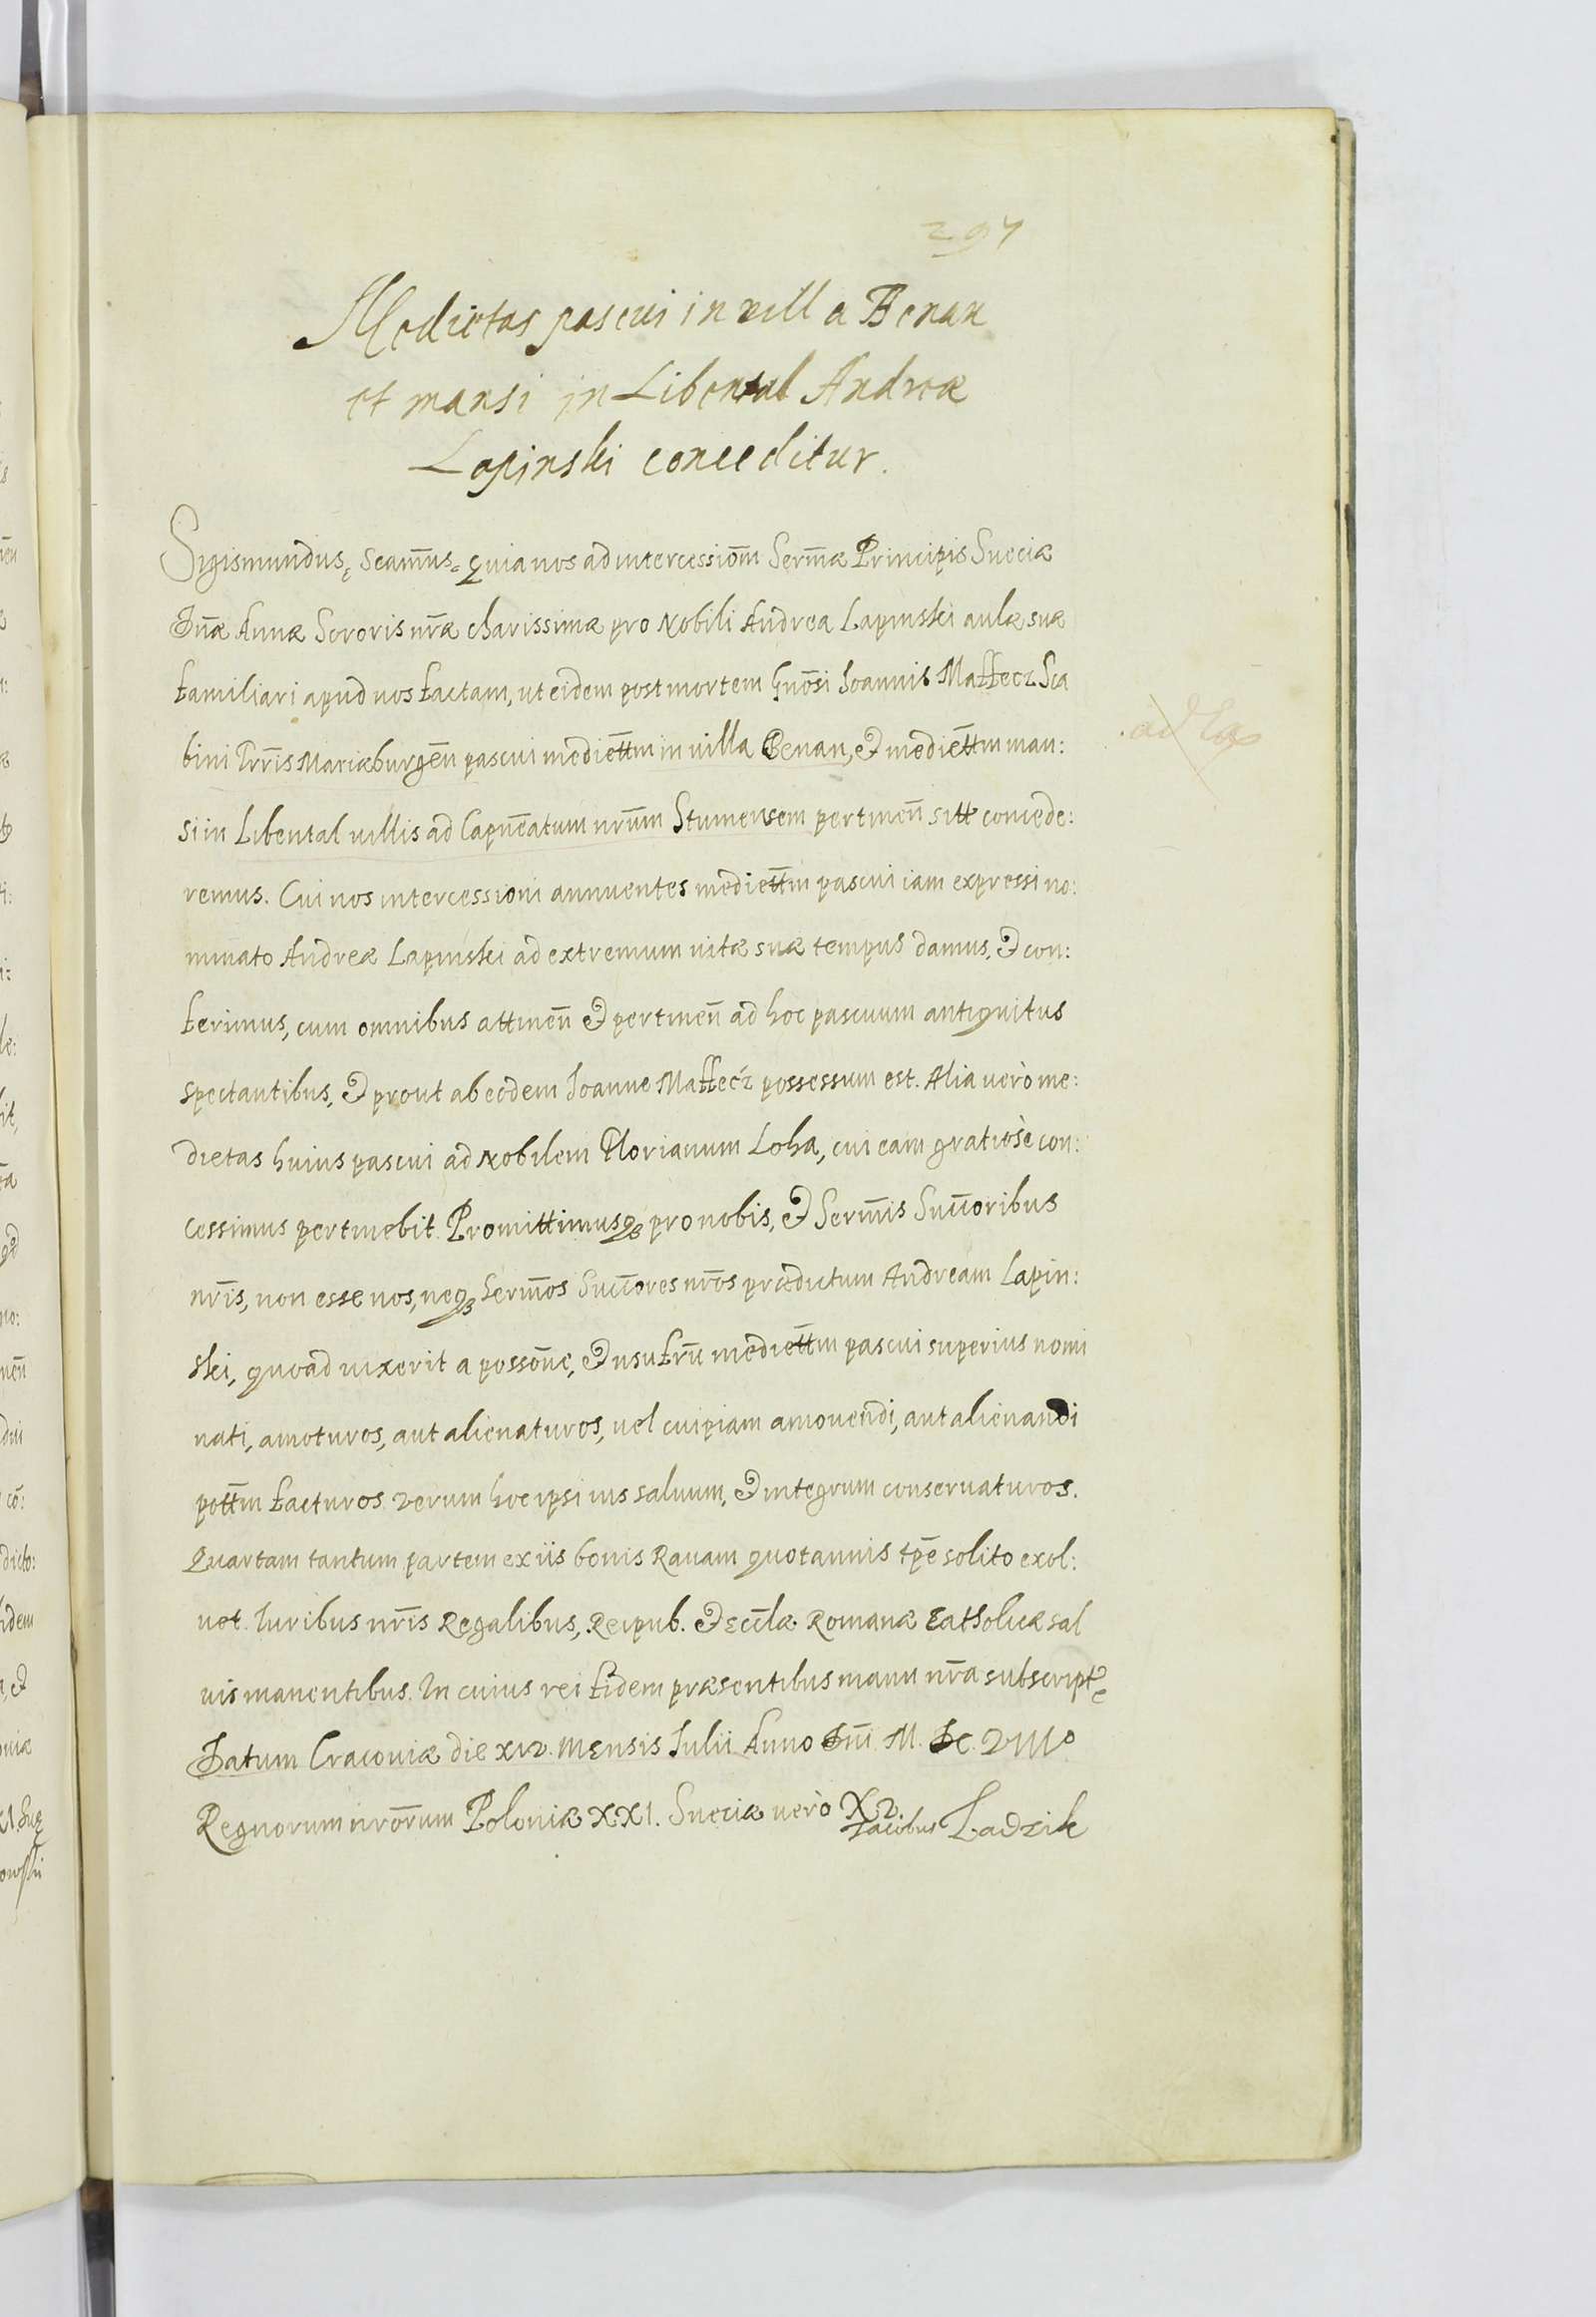 297
Medietas pascui in villa Benan
et mansi in Libental Andreæ
Lapinski conceditur.
Sigismundus, Scam̄us, Quia nos ad intercessiom̄ Serm̄æ Principis Sueciæ
Dn̄æ Annæ Sororis nr̄æ charissimæ pro Nobili Andrea Lapinski aulæ suæ
familiari apud nos factam, ut eidem post mortem Gnōsi Joannis Maffecz Sca
bini Trr̄is Mariæburgen̄ pascui mediett̄m in villa Benan, & mediett̄m man:
si in Libental villis ad Capn̄eatum nrūm Stumensem pertinen̄ sitt concede:
remus. Cui nos intercessioni annuentes mediett̄m pascui iam expressi no:
minato Andreæ Lapinski ad extremum vitæ suæ tempus damus, & con:
ferimus, cum omnibus attinen̄ & pertinen̄ ad hoc pascuum antiquitus
spectantibus, & prout ab eodem Joanne Maffecz possessum est. Alia verò me:
dietas huius pascui ad Nobilem Florianum Loka, cui eam gratiosè con:
cessimus pertinebit. Promittimusq₃ pro nobis, & Serm̄is Succ̄oribus
nr̄is, non esse nos, neq₃ Serm̄os Succ̄ores nr̄os prædictum Andream Lapin:
ski, quoad vixerit a possōne, & usufrū mediett̄m pascui superius nomi
nati, amoturos, aut alienaturos, vel cuipiam amovendi, aut alienandi
pott̄m facturos. verum hoc ipsi ius salvum, & integrum conservaturos.
Quartam tantum partem ex iis bonis Ravam quotannis tp̄e solito exol:
vet. Iuribus nr̄is Regalibus, Reipub. & Eccl̄æ Romanæ Catholicæ sal
vis manentibus. In cuius rei fidem præsentibus manu nr̄a subscript
Datum Cracoviæ die XIV. Mensis Iulii Anno Dn̄i M. DC. VIII°
Regnorum nrōrum Poloniæ XXI. Sueciæ verò XV.
Jacobus Zadzik